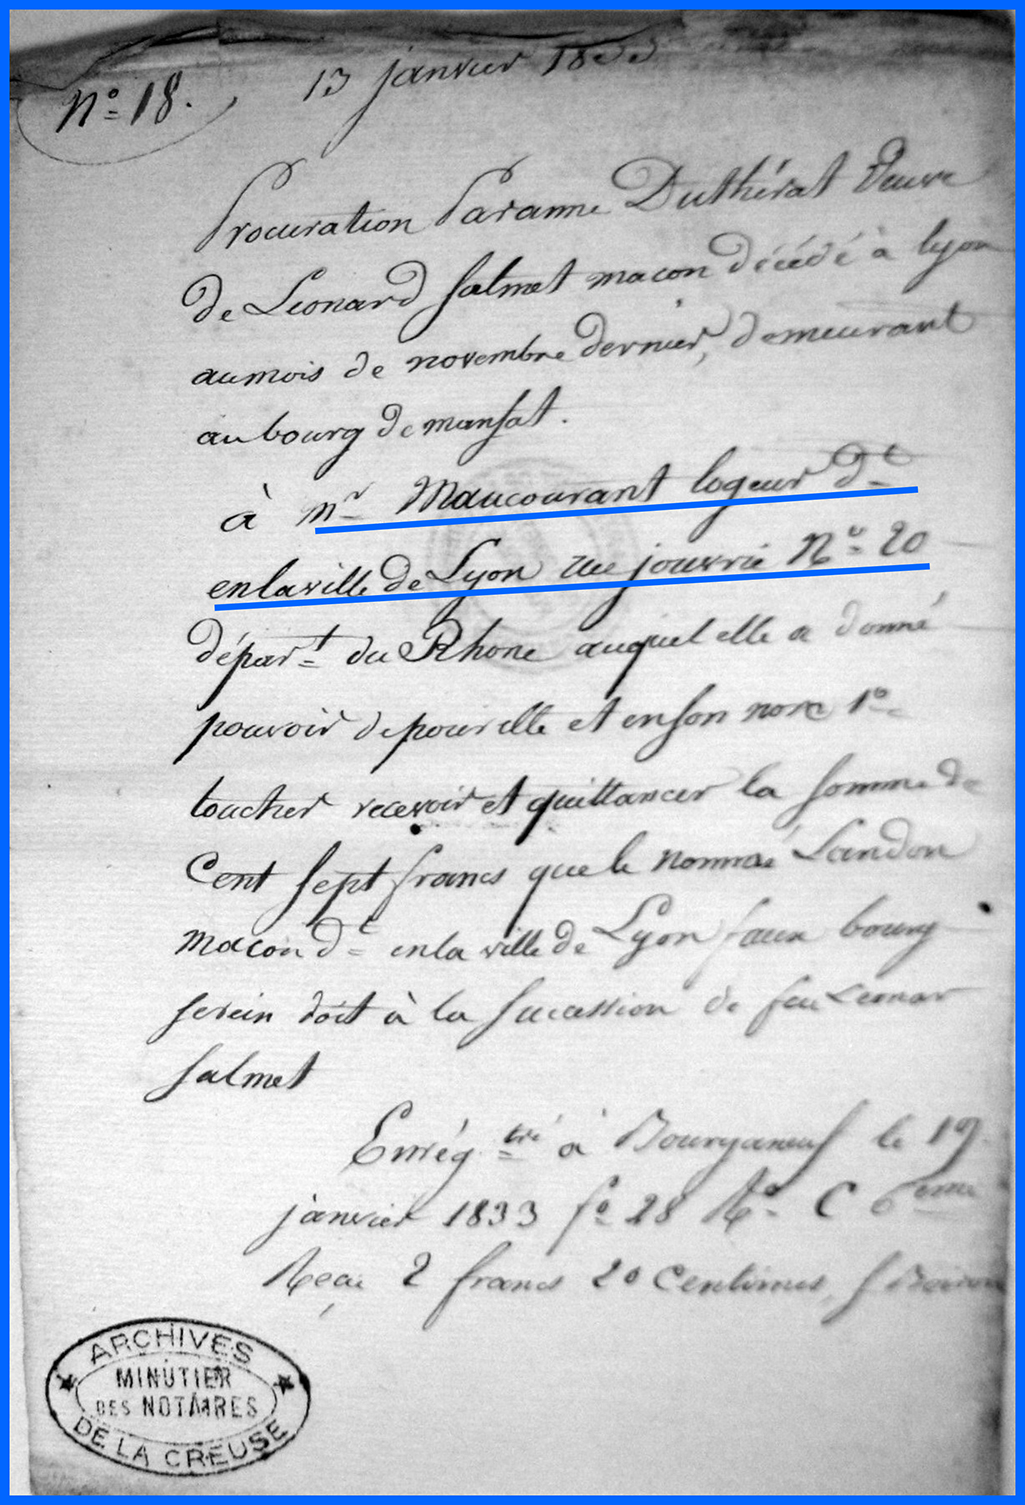 N° 18.
13 janvier 1833
Procuration Paranne Duthérat Veuve
de Leonard Salmet macon décédé à lyon
au mois de novembre dernier, demeurant
au bourg de mansat.
à Mr Maucourant logeur dt
en la ville de Lyon rue jouvrie N° 20
départt du Rhone auquel elle a donné
pouvoir de pour elle et en son nom 1°
toucher recevoir et quittancer la somme de
Cent sept francs que le nommé Landon
macon dt en la ville de Lyon faux bourg
serein doit à la succession de feu Leonar
Salmet
Enrégtré à Bourganeuf le 19
janvier 1833 f° 28 R° C 6eme
Reçu 2 francs 20 Centimes,
ARCHIVES
MINUTIER
DES NOTAIRES
DE LA CREUSE